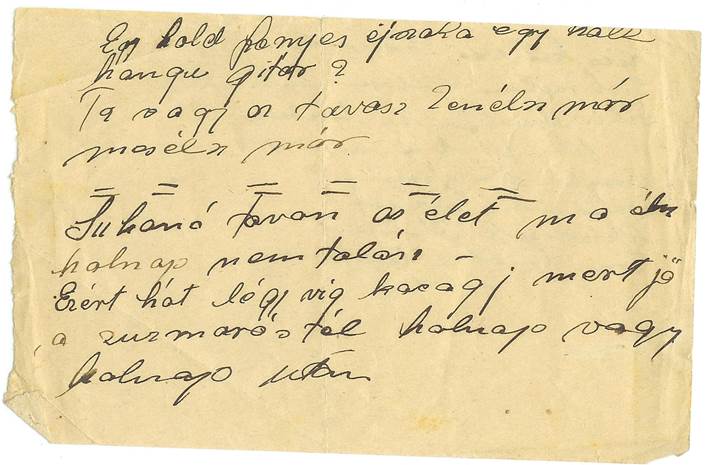 Egy hold fényes éjszaka egy halk
hangu gitár?
Te vagy a tavasz Zenélsz már
mesélsz már
Suhanó tavasz az élet ma él
holnap nem talán
Ezért hát légy víg kacagj mert jö
a zuzmarás tél holnap vagy
holnap után